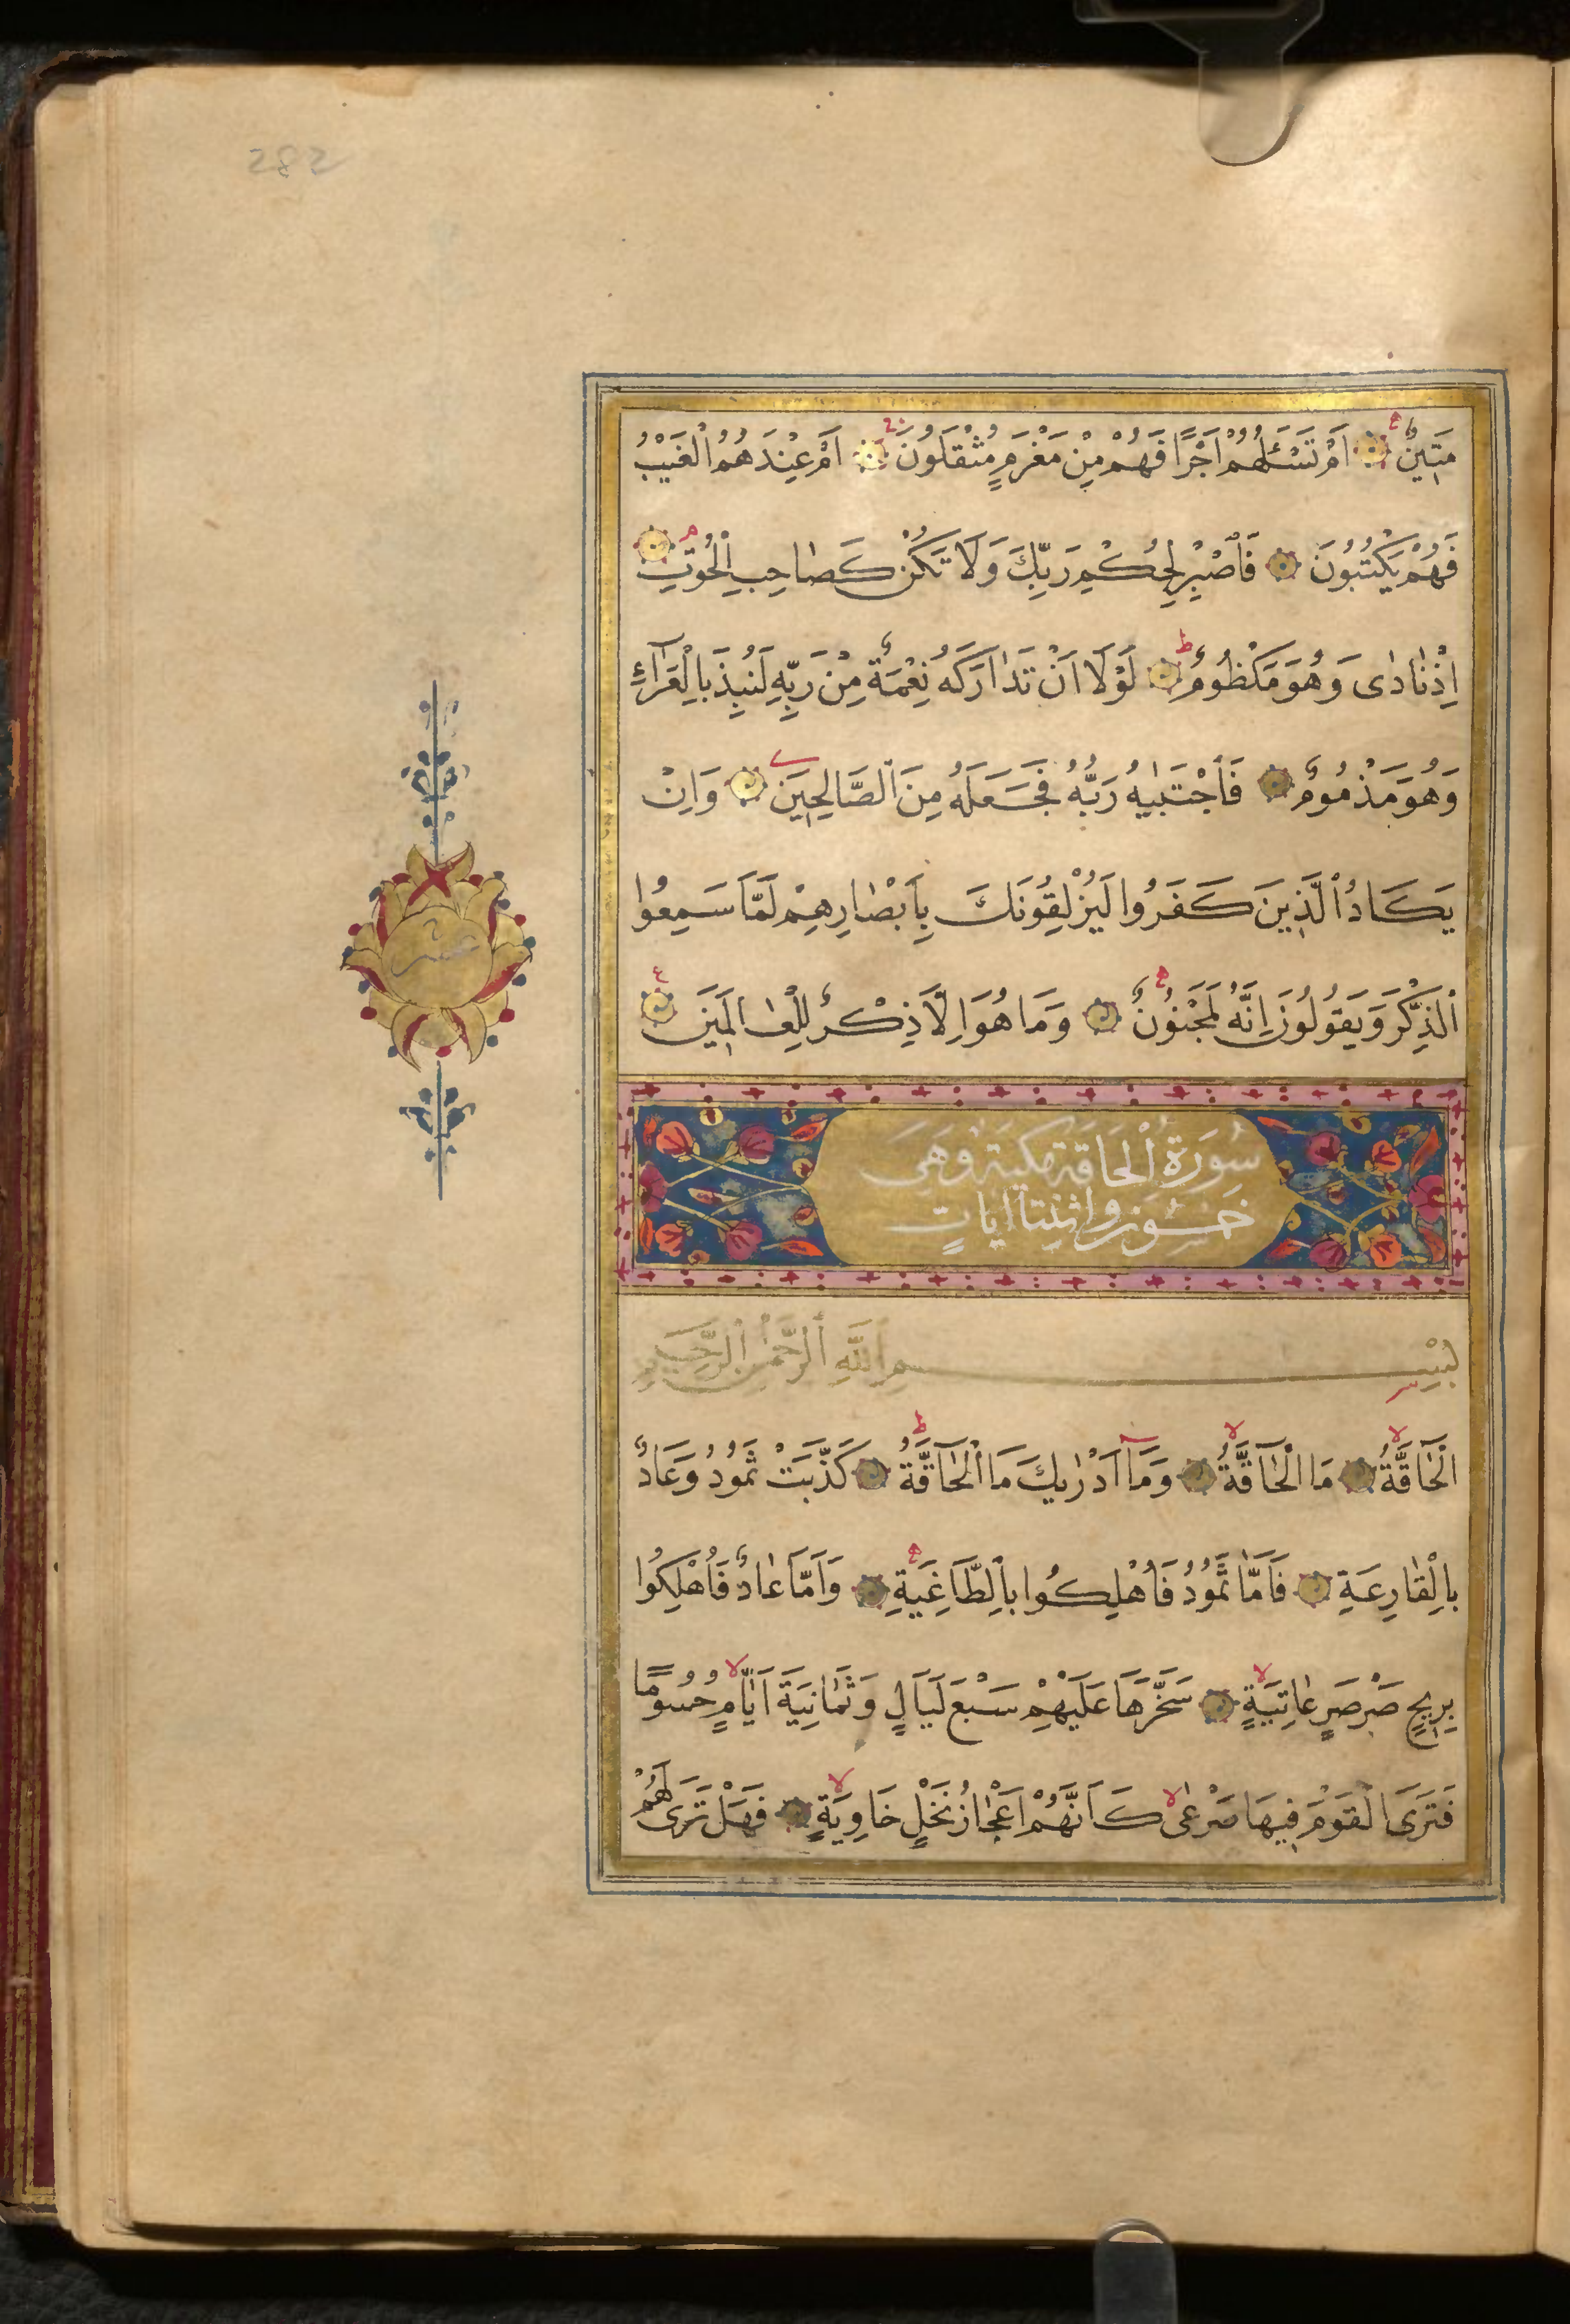 282
مَتِينٌ اَمْ تَسْـَٔلُهُمْ اَجْرًا فَهُمْ مِنْ مَغْرَمٍ مُثْقَلُونَ اَمْ عِنْدَهُمُ الْغَيْبُ
فَهُمْ يَكْتُبُونَ فَاصْبِرْ لِحُكْمِ رَبِّكَ وَلَا تَكُنْ كَصَاحِبِ الْحُوتِ
اِذْ نَادٰى وَهُوَ مَكْظُومٌ لَوْلَا اَنْ تَدَارَكَهُ نِعْمَةٌ مِنْ رَبِّهِ لَنُبِذَ بِالْعَرَآءِ
وَهُوَ مَذْمُومٌ فَاجْتَبٰيهُ رَبُّهُ فَجَعَلَهُ مِنَ الصَّالِحِينَ وَاِنْ
يَكَادُ الَّذِينَ كَفَرُوا لَيُزْلِقُونَكَ بِاَبْصَارِهِمْ لَمَّا سَمِعُوا
الذِّكْرَ وَيَقُولُونَ اِنَّهُ لَمَجْنُونٌ وَمَا هُوَ اِلَّا ذِكْرٌ لِلْعَالَمِينَ
عشر
سُورَةُ الْحَاقَّة مَكِّيَة وَهِيَ
خَمْسُونَ وَاثْنِتَا اٰيَاتٍ
بِسْمِ اللَّهِ الرَّحْمٰنِ الرَّحِيمِ
اَلْحَآقَّةُ مَا الْحَآقَّةُ وَمَآ اَدْرٰيكَ مَا الْحَآقَّةُ كَذَّبَتْ ثَمُودُ وَعَادٌ
بِالْقَارِعَةِ فَاَمَّا ثَمُودُ فَاُهْلِكُوا بِالطَّاغِيَةِ وَاَمَّا عَادٌ فَاُهْلِكُوا
بِرِيحٍ صَرْصَرٍ عَاتِيَةٍ سَخَّرَهَا عَلَيْهِمْ سَبْعَ لَيَالٍ وَثَمَانِيَةَ اَيَّامٍ حُسُومًا
فَتَرَى الْقَوْمَ فِيهَا صَرْعٰى كَاَنَّهُمْ اَعْجَازُ نَخْلٍ خَاوِيَةٍ فَهَلْ تَرٰى لَهُمْ